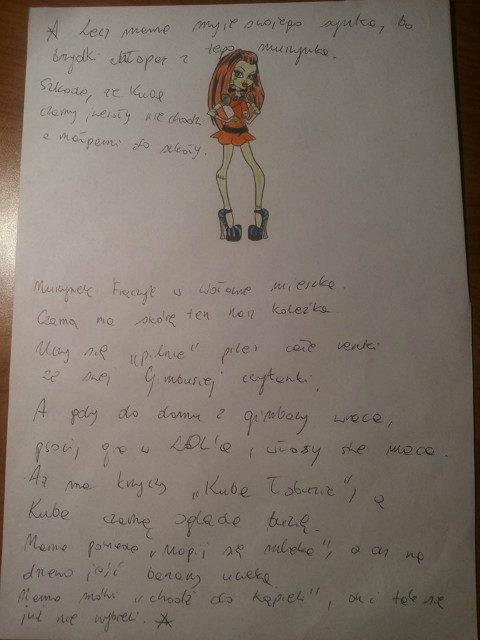 ☆ Lecz mama myje swojego synka, bo
brzydki z tego murzynka.
Szkoda, że Kuba
czarny, wesoły nie chodzi
z małpami do szkoły.
Murzynek w mieszka
Czarną ma skórę ten nasz koleżka.
Uczy się „pilnie” przez całe ranki
ze swej Gimbusiej czytanki.
A gdy do domu z gimbazy wraca,
psoci, gra w LOL'a, włosy se maca.
Aż ma krzyczy „Kuba Łobuzie”, a
Kuba czarną ogląda buzię.
Mama powiada „Napij się mleka”, a on na
drzewo jeść banany ucieka
Mama mówi „chodź do kąpieli”, on i tak się
już nie wybieli. ☆